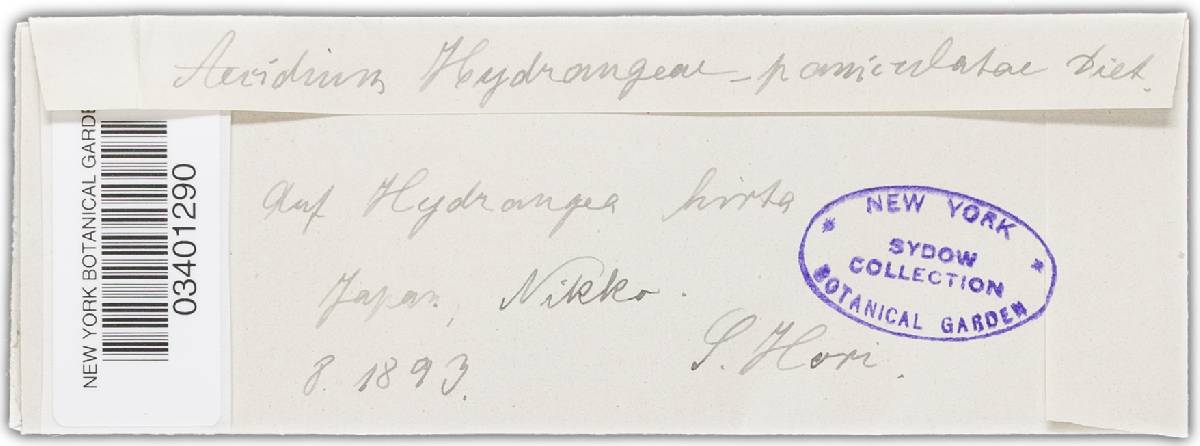 Aecidium Hydrangeae-paniculatae Diet.
Auf Hydrangea hirta
Japan, Nikko.
8. 1893.
S. Hori.
NEW YORK
SYDOW
COLLECTION
BOTANICAL GARDEN
NEW YORK BOTANICAL GARDE
03401290